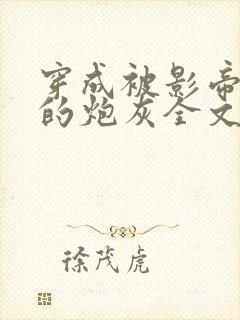 穿成被影帝
的炮灰全文
徐茂虎